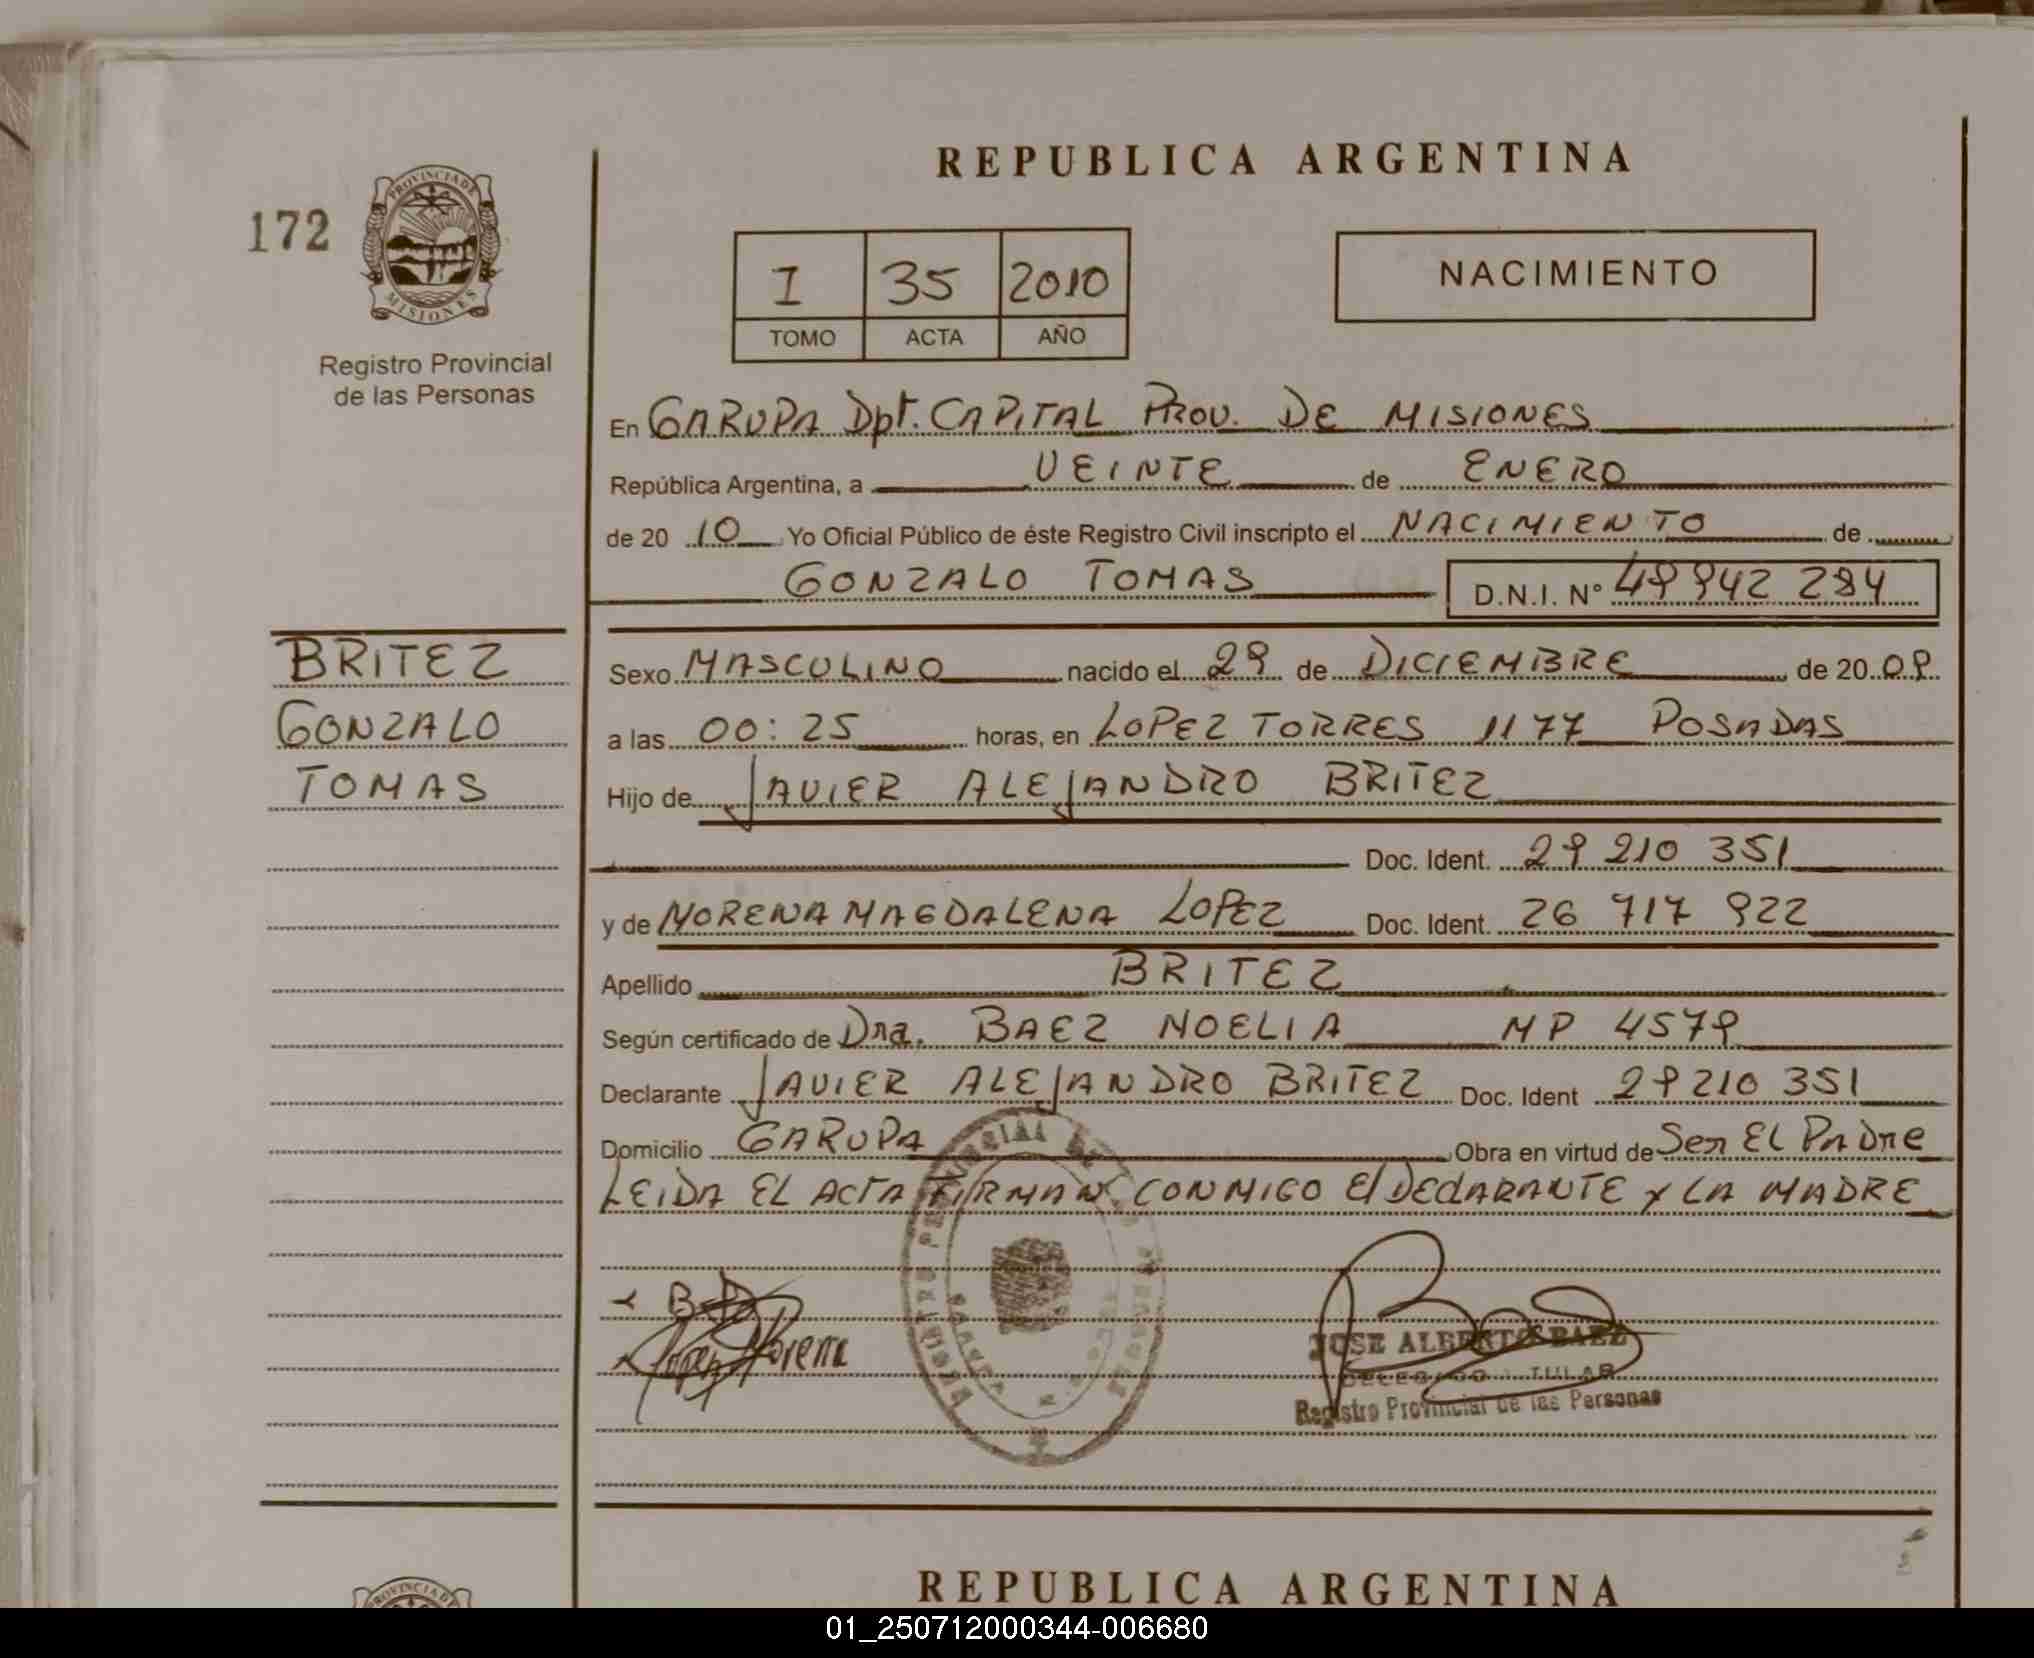 REPUBLICA ARGENTINA
172
PROVINCIA DE
MISIONES
Registro Provincial
de las Personas
I 35 2010
TOMO ACTA AÑO
NACIMIENTO
En GARUPA Dpt. CAPITAL PROV. DE MISIONES
República Argentina, a VEINTE de ENERO
de 20 10 Yo Oficial Público de éste Registro Civil inscripto el NACIMIENTO de
GONZALO TOMAS D.N.I. N° 49942 284
BRITEZ
GONZALO
TOMAS
Sexo MASCULINO nacido el 29 de DICIEMBRE de 20 09
a las 00:25 horas, en LOPEZ TORRES 1177 POSADAS
Hijo de JAVIER ALEJANDRO BRITEZ
Doc. Ident. 29 210 351
y de MORENA MAGDALENA LOPEZ Doc. Ident. 26 717 922
Apellido BRITEZ
Según certificado de Dra. BAEZ NOELIA MP 4579
Declarante JAVIER ALEJANDRO BRITEZ Doc. Ident 29 210 351
Domicilio GARUPA Obra en virtud de Ser EL PADre
LEIDA EL ACTA FIRMAN CONMIGO El DEClARANTE y LA MADRE
Lopez Morena
JOSE ALBERTO BAEZ
DELEGADO TITULAR
Registro Provincial de las Personas
REPUBLICA ARGENTINA
PROVINCIA DE
01_250712000344-006680